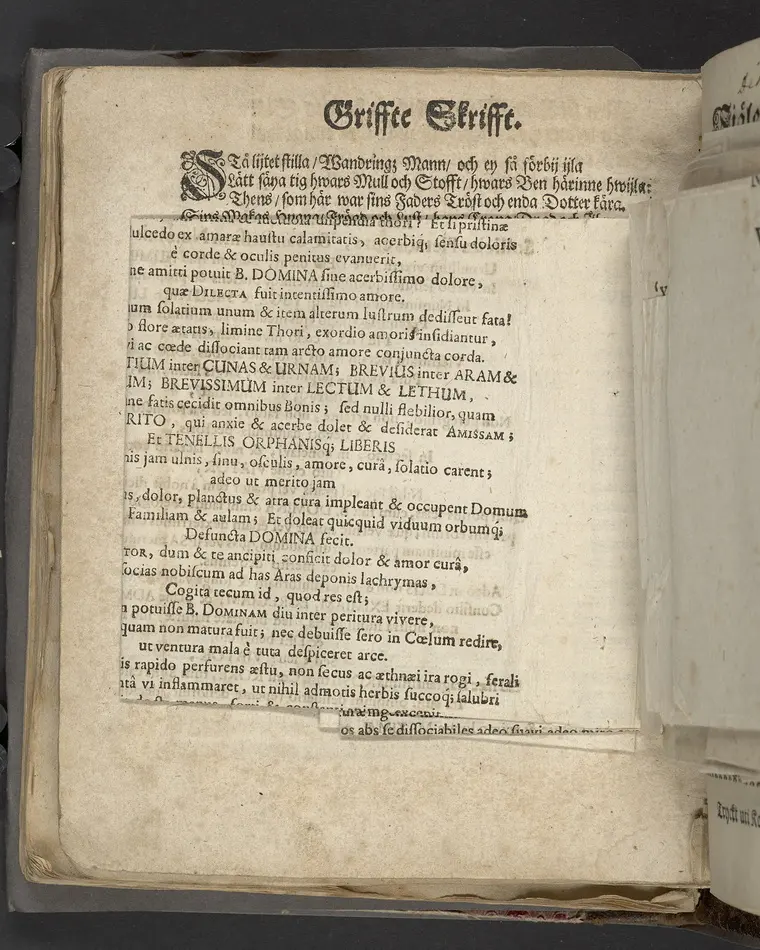 Griffte Skrifft.
STå lijtet stilla / Wandringz Mann / och ey så förbij ijla
Lätt säya tig hwars Mull och Stofft / hwars Been härinne hwijla:
Thens / som här war sins Faders Tröst och enda Dotter kära.
thori? Et si pristinæ
ulcedo ex amaræ haustu calamitatis, acerbiq; sensu doloris
è corde & oculis penitus evanuerit,
ne amitti potuit B. DOMINA sine acerbissimo dolore,
quæ DILECTA fuit intentissimo amore.
um solatium unum & item alterum lustrum dedissent fata!
o flore ætatis, limine Thori, exordio amoris insidiantur,
vi ac cæde dissociant tam arcto amore conjuncta corda.
TIUM inter CUNAS & URNAM; BREVIUS inter ARAM &
IM; BREVISSIMUM inter LECTUM & LETHUM,
ne fatis cecidit omnibus Bonis; sed nulli flebilior, quam
RITO, qui anxie & acerbe dolet & desiderat AMISSAM;
Et TENELLIS ORPHANISq; LIBERIS
nis jam ulnis, sinu, osculis, amore, curâ, solatio carent;
adeo ut merito jam
us, dolor, planctus & atra cura impleant & occupent Domum
Familiam & aulam; Et doleat quicquid viduum orbumq;
Defuncta DOMINA fecit.
TOR, dum & te ancipiti conficit dolor & amor curâ,
socias nobiscum ad has Aras deponis lachrymas,
Cogita tecum id, quod res est;
n potuisse B. DOMINAM diu inter peritura vivere,
quam non matura fuit; nec debuisse sero in Cœlum redire,
ut ventura mala è tuta despiceret arce.
is rapido perfurens æstu, non secus ac æthnæi ira rogi, ferali
ntâ vi inflammaret, ut nihil admotis herbis succoq; salubri
os abs se dissociabiles adeo suavi adeo
Tryckt uti